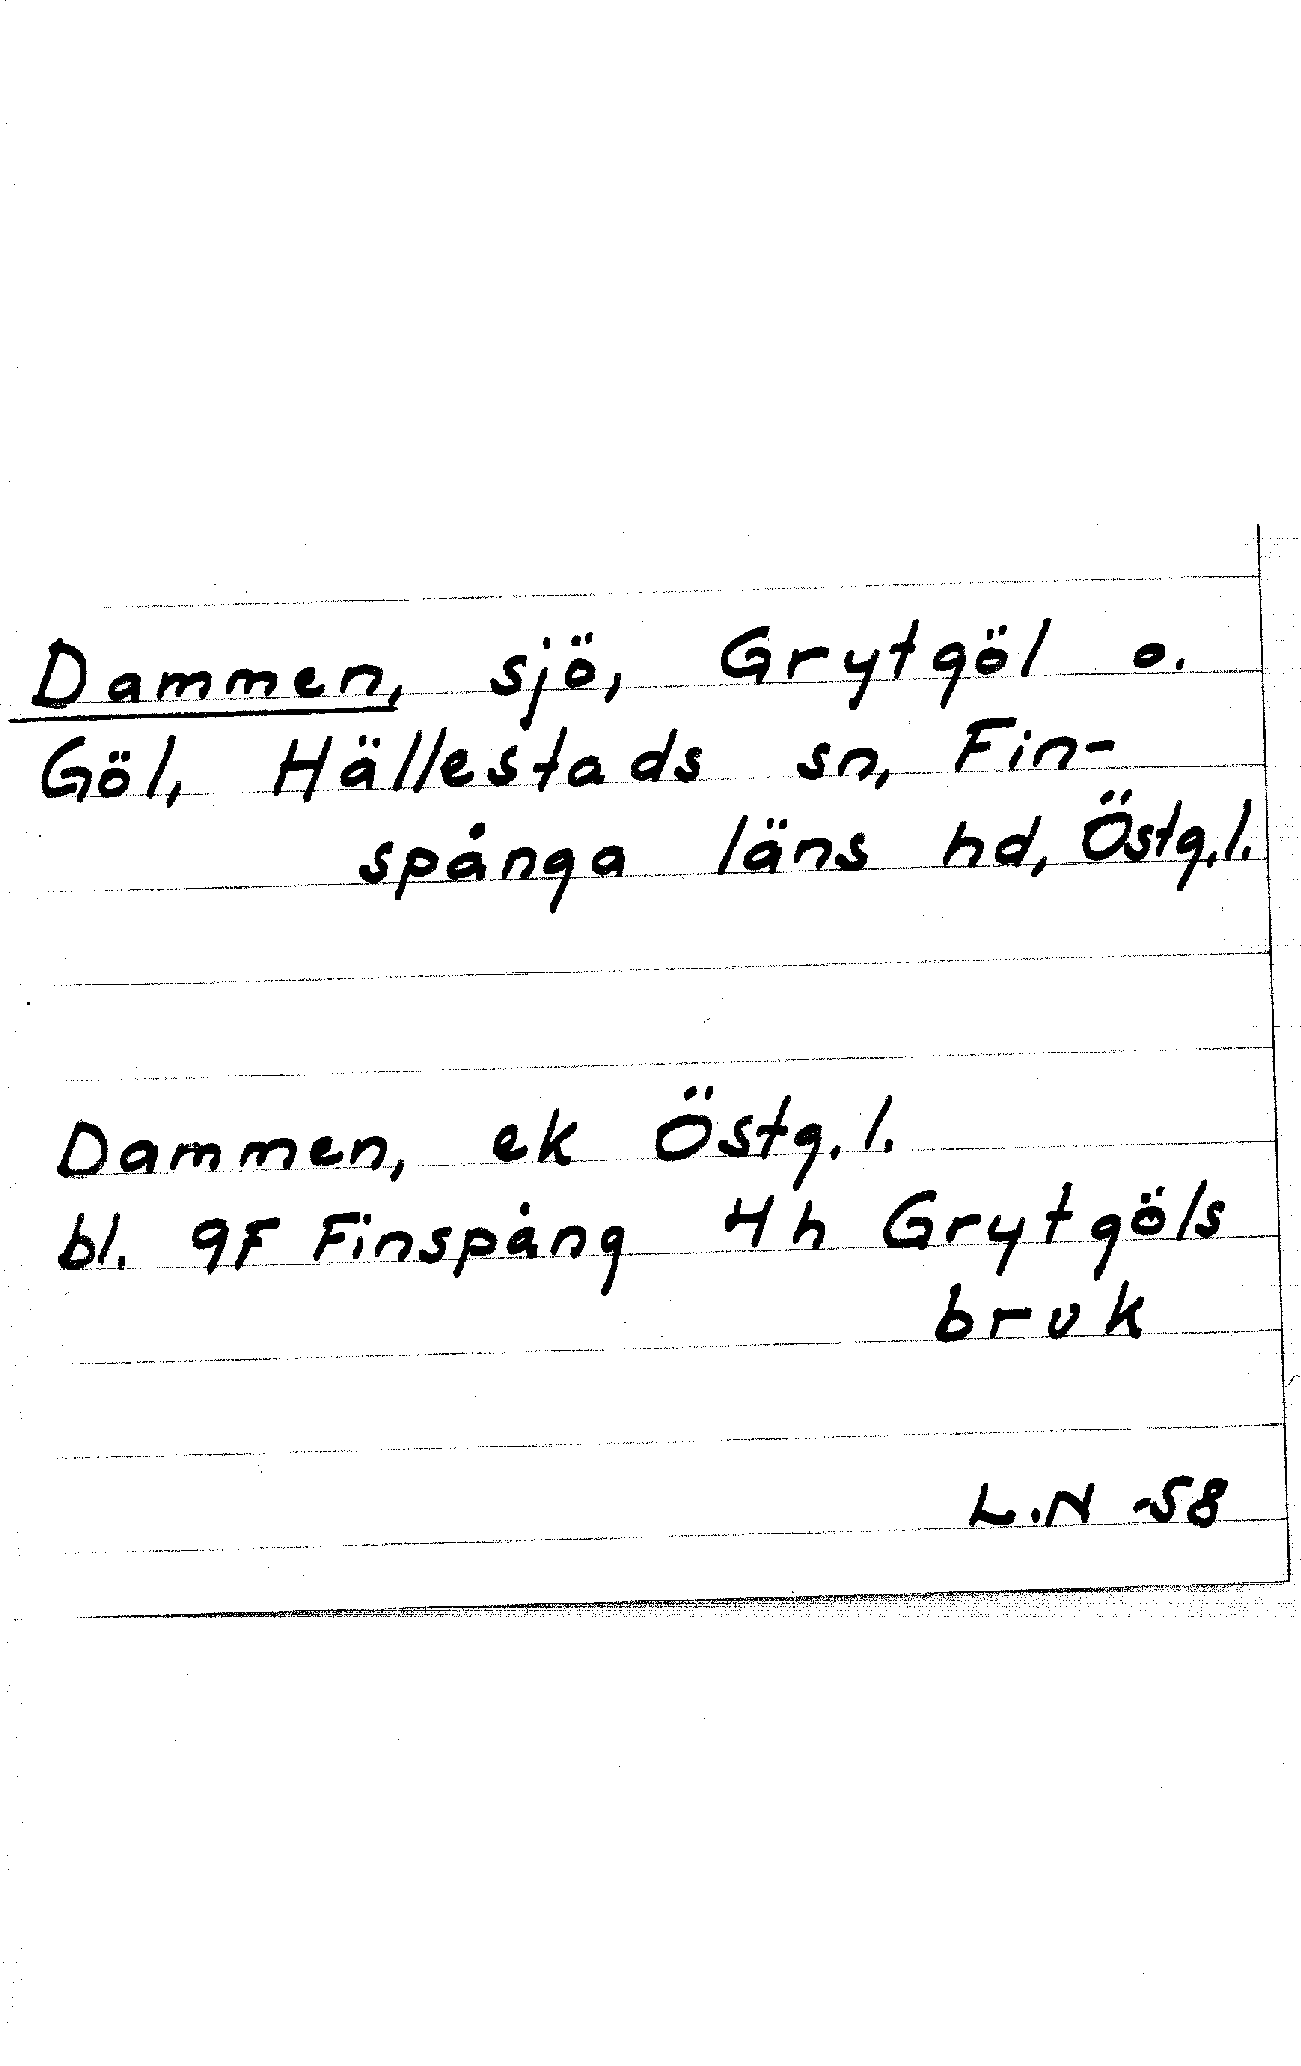 Dammen, sjö, Grytgöl o.
Göl, Hällestads sn, Fin-
spånga läns hd, Östg.l.
Dammen, ek Östg.l.
bl. 9F Finspång 4h Grytgöls
bruk
L.N -58